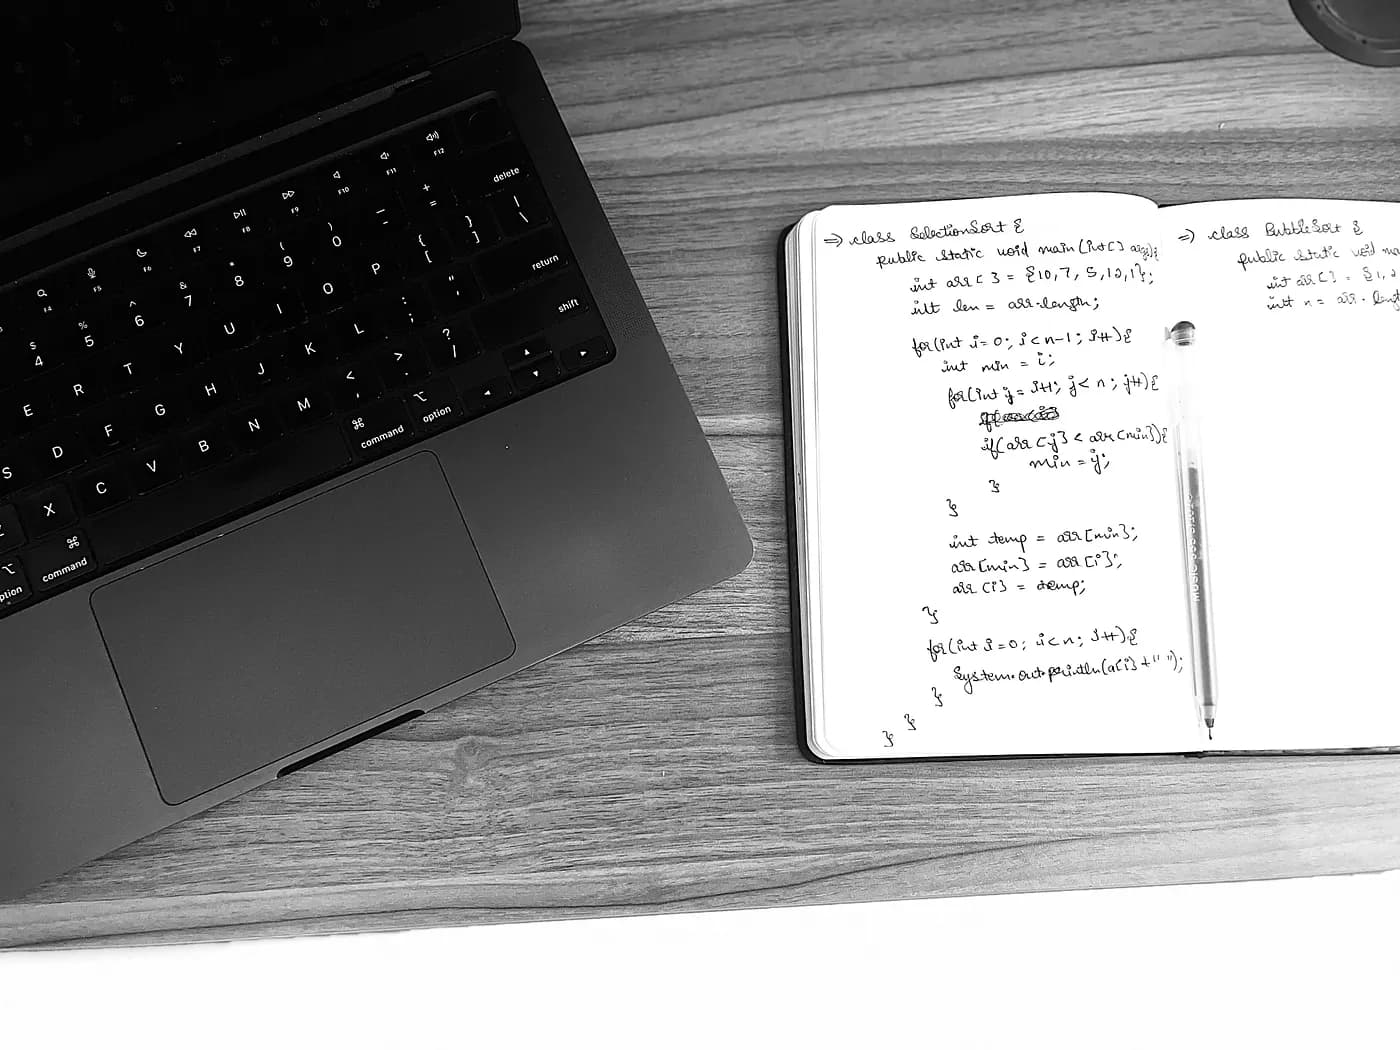 delete
return
shift
command
option
command
ption
F4
F5
F6
F7
F8
F9
F10
F11
F12
$ % ^ & * ( ) _ +
4 5 6 7 8 9 0 - =
E R T Y U I O P { [ } ] | \
S D F G H J K L : ; " '
X C V B N M < , > . ? /
=> class SelectionSort {
public static void main(int[] args){
int arr[] = {10,7,5,12,1};
int len = arr.length;
for(int i=0; i<n-1; i++){
int min = i;
for(int j=i+1; j<n; j++){
if(arr[j] < arr[min]){
min = j;
}
}
int temp = arr[min];
arr[min] = arr[i];
arr[i] = temp;
}
for(int i=0; i<n; i++){
System.out.println(a[i]+" ");
}
}
}
=> class BubbleSort {
public static void ma
int arr[] = {1,2
int n = arr.leng